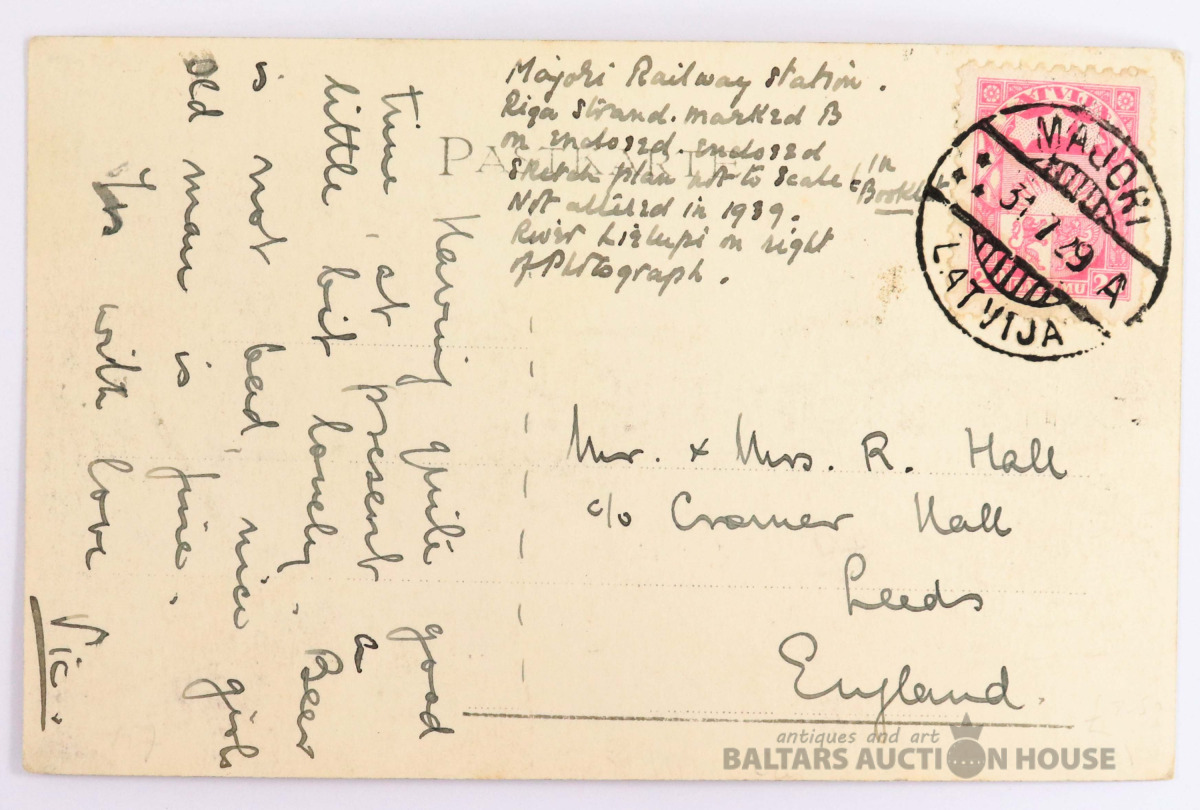 Majori Railway Station.
Riga Strand. marked B
on enclosed. enclosed
Sketch plan not to scale (in
Booklet
Not altered in 1939.
River Lielupi on right
of Photograph.
PASTKARTE
LATVIJA
MAJORI
31.7.29 A
LATVIJA
time, Having quite good
little, at present a
bit lonely. Beer
is not bad, nice girls
old man is fine.
Yrs with love
Vic.
Mr. + Mrs. R. Hall
c/o Cromer Hall
Leeds
England.
antiques and art
BALTARS AUCTION HOUSE